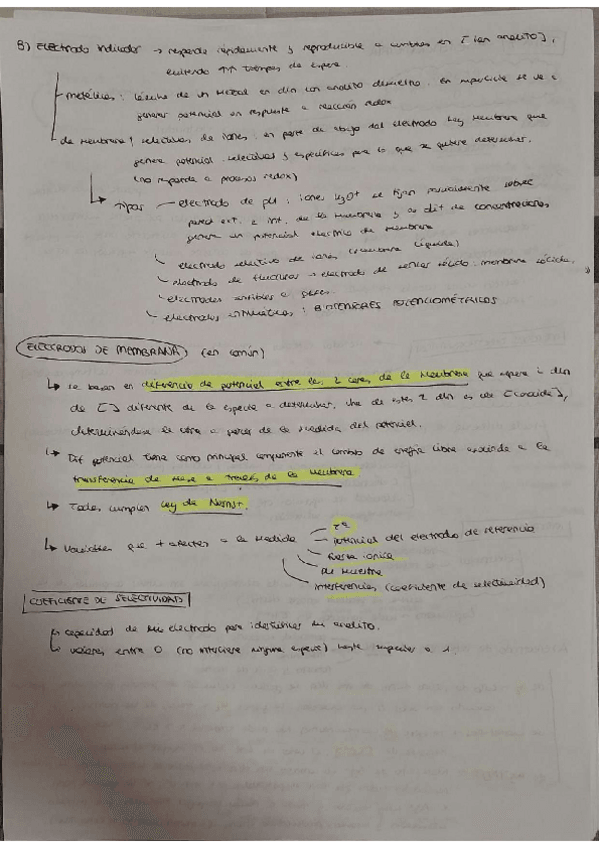 B) ELECTRODO Indicador → responde rápidamente y reproducible a cambios en [ion analito],
evitando ↑↑ tiempos de espera.
metálicos: lámina de un metal en dln con analito disuelto. en superficie se va a
generar potencial en respuesta a reacción redox
de membrana / selectivos de iones: en parte de abajo del electrodo hay membrana que
genera potencial. selectivos y específicos para lo que se quiere determinar.
(no responde a procesos redox)
Tipos — electrodo de pH: iones H3O+ se fijan parcialmente sobre
pared ext. e int. de la membrana y la dif de concentraciones
genera un potencial eléctrico de membrana
electrodo selectivo de iones (membrana líquida)
electrodo de fluoruros → electrodo de sensor sólido: membrana sólida.
electrodos sensibles a gases.
electrodos enzimáticos: BIOSENSORES POTENCIOMÉTRICOS
ELECTRODOS DE MEMBRANA (en común)
↳ se basan en diferencia de potencial entre las 2 caras de la membrana que separa 2 dln
de [ ] diferente de la especie a determinar. Una de estas 2 dln es de [conocida],
determinándose la otra a partir de la medida del potencial.
↳ Dif potencial tiene como principal componente el cambio de energía libre asociado a la
transferencia de masa a través de la membrana
↳ Todos cumplen Ley de Nernst.
↳ Variables que + afectan a la medida — Tª
potencial del electrodo de referencia
fuerza iónica
pH muestra
interferencias (coeficiente de selectividad)
COEFICIENTE DE SELECTIVIDAD
↳ capacidad de un electrodo para identificar un analito.
↳ valores entre 0 (no interfiere ninguna especie) hasta superior a 1.